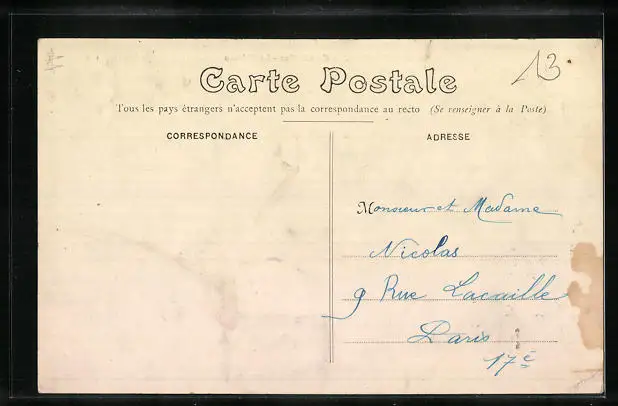 13
Carte Postale
Tous les pays étrangers n'acceptent pas la correspondance au recto (Se renseigner à la Poste)
CORRESPONDANCE
ADRESSE
Monsieur et Madame
Nicolas
9 Rue Lacaille
Paris
17e